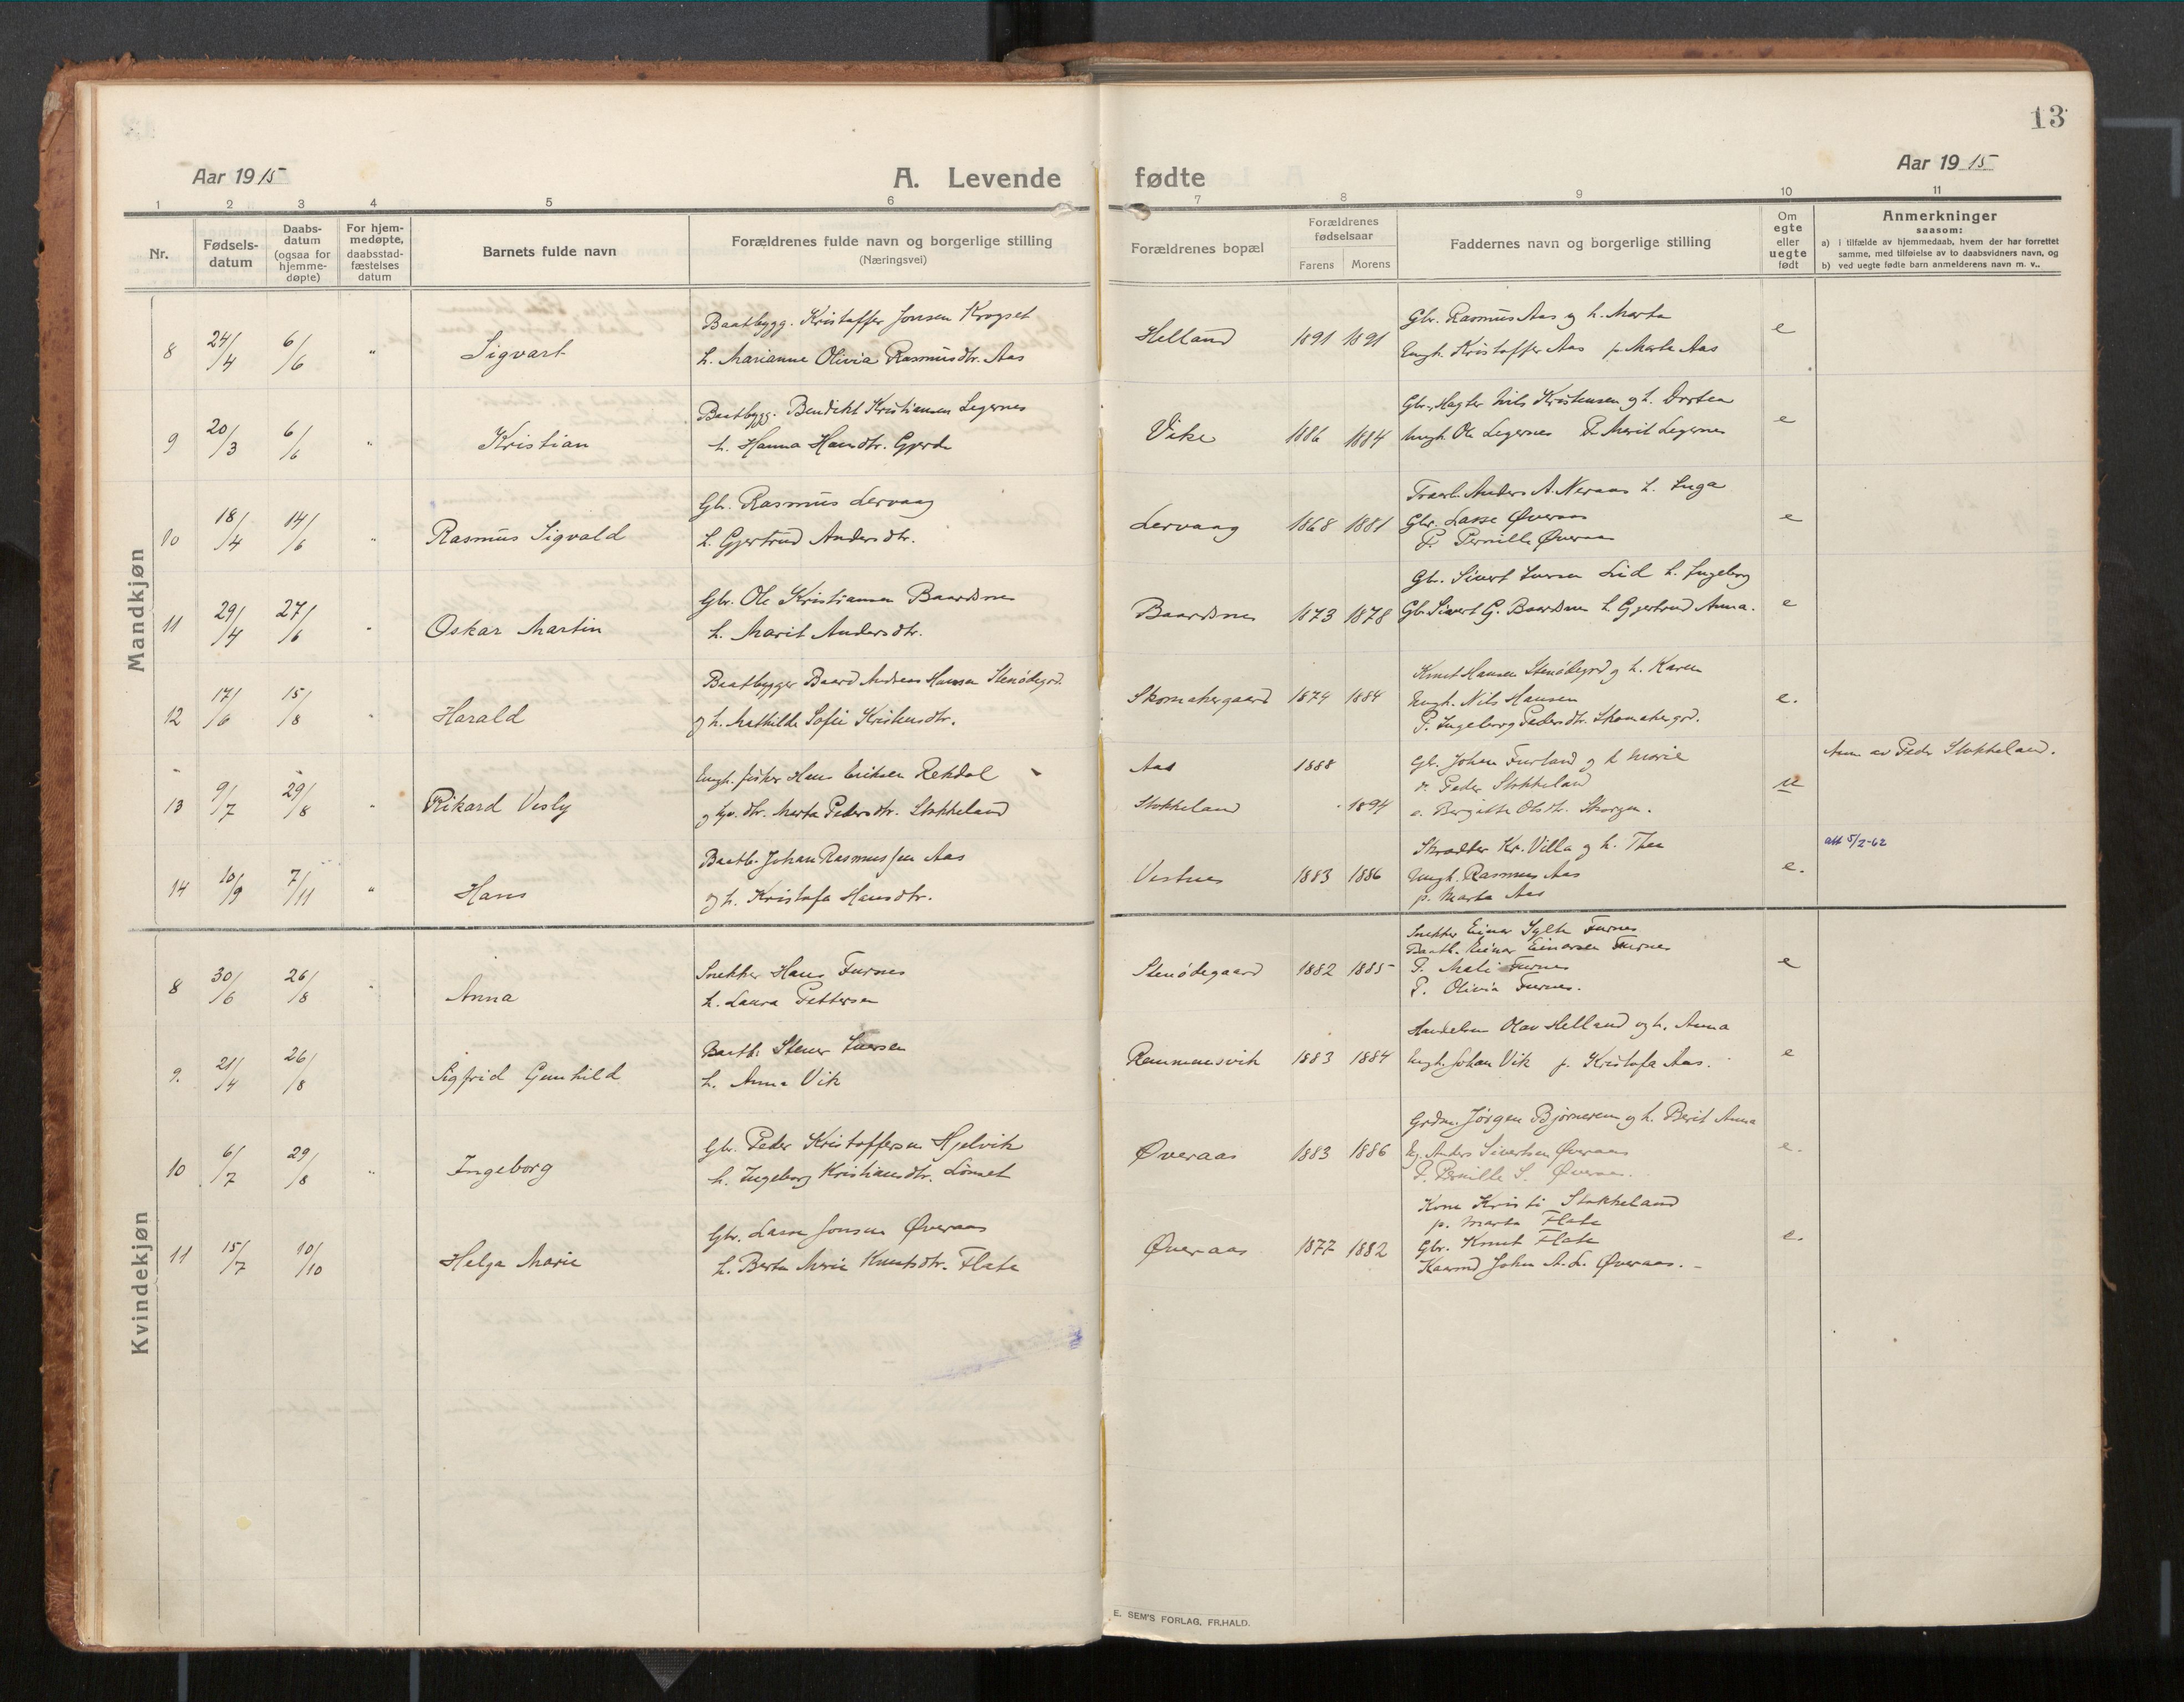 13
Aar 1915
A. Levende fødte
Aar 1915
1 2 3 4 5 6 7 8 9 10 11
Nr.
Fødsels-datum
Daabs-datum (ogsaa for hjemme-døpte)
For hjem-medøpte, daabsstad-fæstelses datum
Barnets fulde navn
Forældrenes fulde navn og borgerlige stilling
(Næringsvei)
Forældrenes bopæl
Forældrenes fødselsaar
Farens Morens
Faddernes navn og borgerlige stilling
Om egte eller uegte født
Anmerkninger
saasom:
a) i tilfælde av hjemmedaab, hvem der har forrettet
samme, med tilføielse av to daabsvidners navn, og
b) ved uegte fødte barn anmelderens navn m. v..
Mandkjøn
8 24/4 6/6 " Sigvart
Baatbygg. Kristoffer Jonsen Krogset
h. Marianne Olivia Rasmusdtr. Aas
Helland 1891 1891
Gbr. Rasmus Aas og h. Marta
Ungk. Kristoffer Aas p. Marta Aas
e
9 20/3 6/6 " Kristian
Baatbygg. Bendikt Kristiansen Legernes
h. Hanna Hansdtr. Gjerde
Vike 1886 1884
Nils Kristensen og h. Dortea
Ungk. Ole Legernes P. Marit Legernes
e
10 18/4 14/6 " Rasmus Sigvald
Gbr. Rasmus Lervaag
h. Gjertrud Andersdtr.
Lervaag 1868 1881
Anders A. Neraas h. Inga
Gbr. Lasse Øveraas
P. Pernille Øveraas
e
11 29/4 27/6 " Oskar Martin
Gbr. Ole Kristiansen Baardsnes
h. Marit Andersdtr.
Baardsnes 1873 1878
Gbr. Sivert Iversen Lid h. Ingeborg
Gbr. Sivert G. Baardsnes h. Gjertrud Anna.
e
12 17/6 15/8 " Harald
Baatbygger Baard Andreas Hansen Stenødegrd.
og h. Mathilde Sofie Kristensdtr.
Skomakergaard 1874 1884
Knut Hansen Stenødegrd og h. Karen
Ungk. Nils Hansen
P. Ingeborg Pedersdtr. Skomakergrd.
e.
13 9/7 29/8 " Rikard Vesly
Ungk. fisker Hans Eriksen Rekdal
og dtr. Marta Pedersdtr. Stokkeland
Aas 1888
Stokkeland 1894
Gbr. Johan Furland og h Marie
Peder Stokkeland
Bergitte Olsdtr. Skorgen.
u
Anm av Peder Stokkeland.
14 10/9 7/11 " Hans
Baatb. Johan Rasmussen Aas
og h. Kristofa Hansdtr.
Vestnes 1883 1886
Skrædder Kr. Villa og h. Thea
Ungk. Rasmus Aas
p. Marta Aas
e.
att 5/2-62
Kvindekjøn
8 30/6 26/8 " Anna
Snekker Hans Furnes
h. Laura Pettersen
Stenødegaard 1882 1885
Snekker Einar Sylte Furnes
Baatb. Einar Einarsen Furnes
P. Mali Furnes
P. Olivia Furnes.
e
9. 21/4 26/8 Sigfrid Gunhild
Baatb. Stener Iversen
h. Anna Vik
Remmemsvik 1883 1884
Handelsm Olav Helland og h. Anna
Ungk. Johan Vik p. Kristofa Aas.
e
10 6/7 29/8 " Ingeborg
Gbr. Peder Kristoffersen Hjelvik
h. Ingeborg Kristiansdtr. Lønset
Øveraas 1883 1886
Grdm Jørgen Bjørnerem og h. Berit Anna
Ug. Anders Sivertsen Øveraas
P. Pernille S. Øveraas.
e.
11 15/7 10/10 Helga Marie
Gbr. Lasse Jonsen Øveraas
h. Berta Marie Knutsdtr. Flate
Øveraas 1877 1882
Kone Kristi Stokkeland
p. Marta Flate
Gbr. Knut Flate
Kaarmd John A. L. Øveraas. -
e.
E. SEM'S FORLAG, FR.HALD.